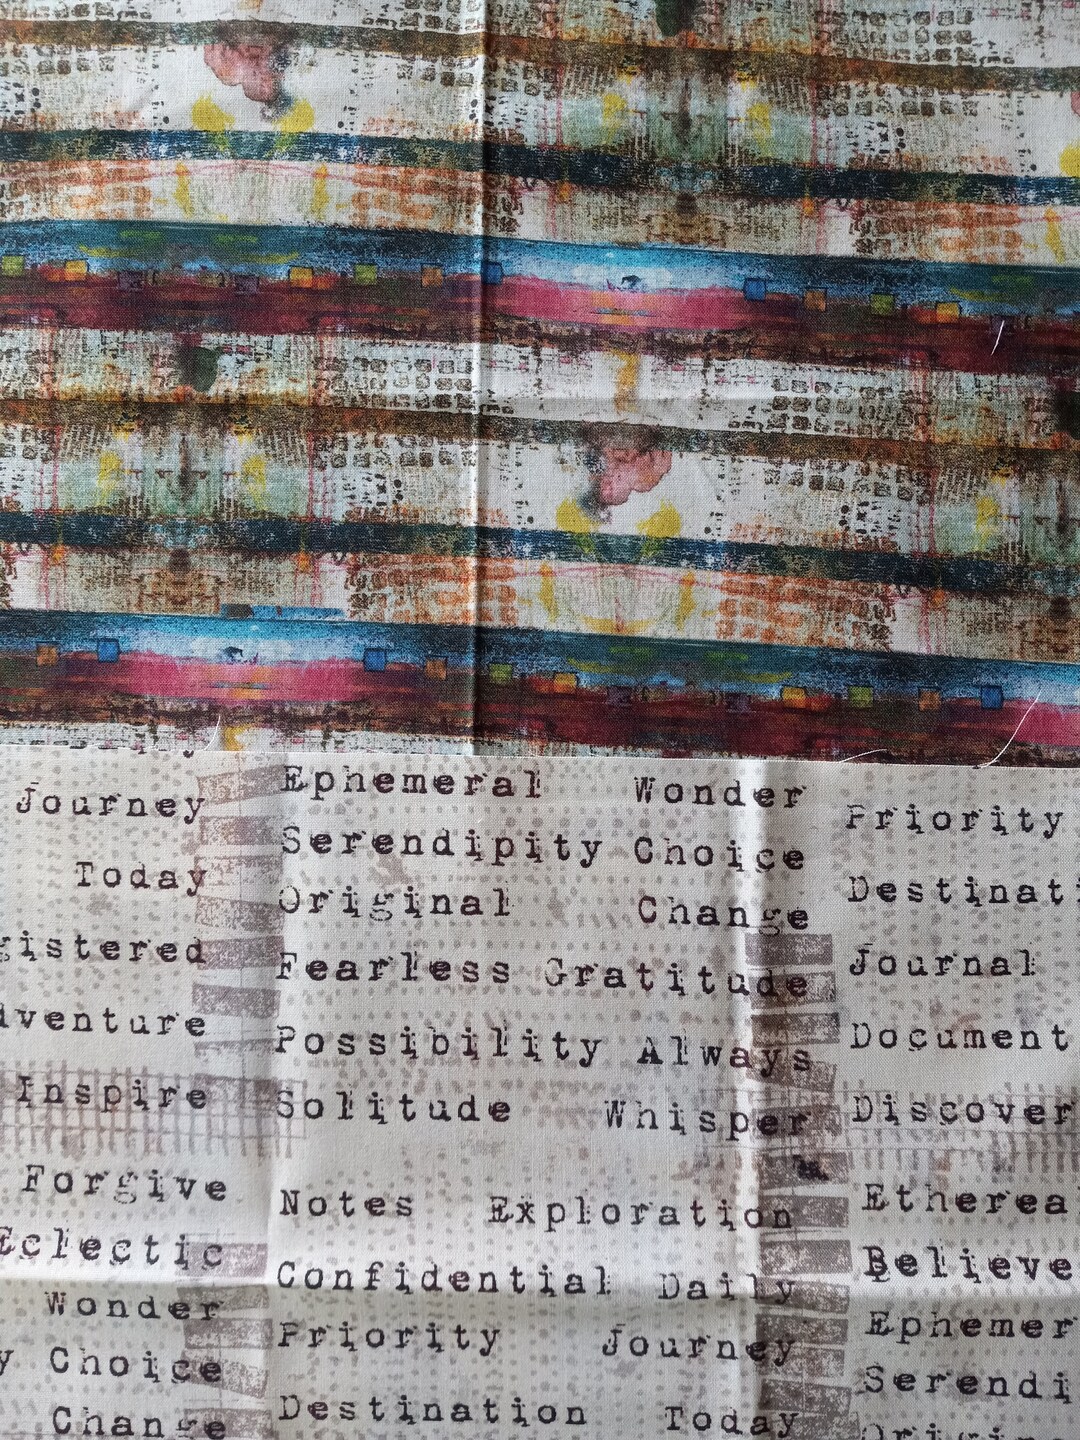 Journey
Today
gistered
dventure
Inspire
Forgive
Eclectic
Wonder
y Choice
Change
Ephemeral Wonder
Serendipity Choice
Original Change
Fearless Gratitude
Possibility Always
Solitude Whisper
Notes Exploration
Confidential Daily
Priority Journey
Destination Today
Priority
Destinati
Journal
Document
Discover
Etherea
Believe
Ephemer
Serendi